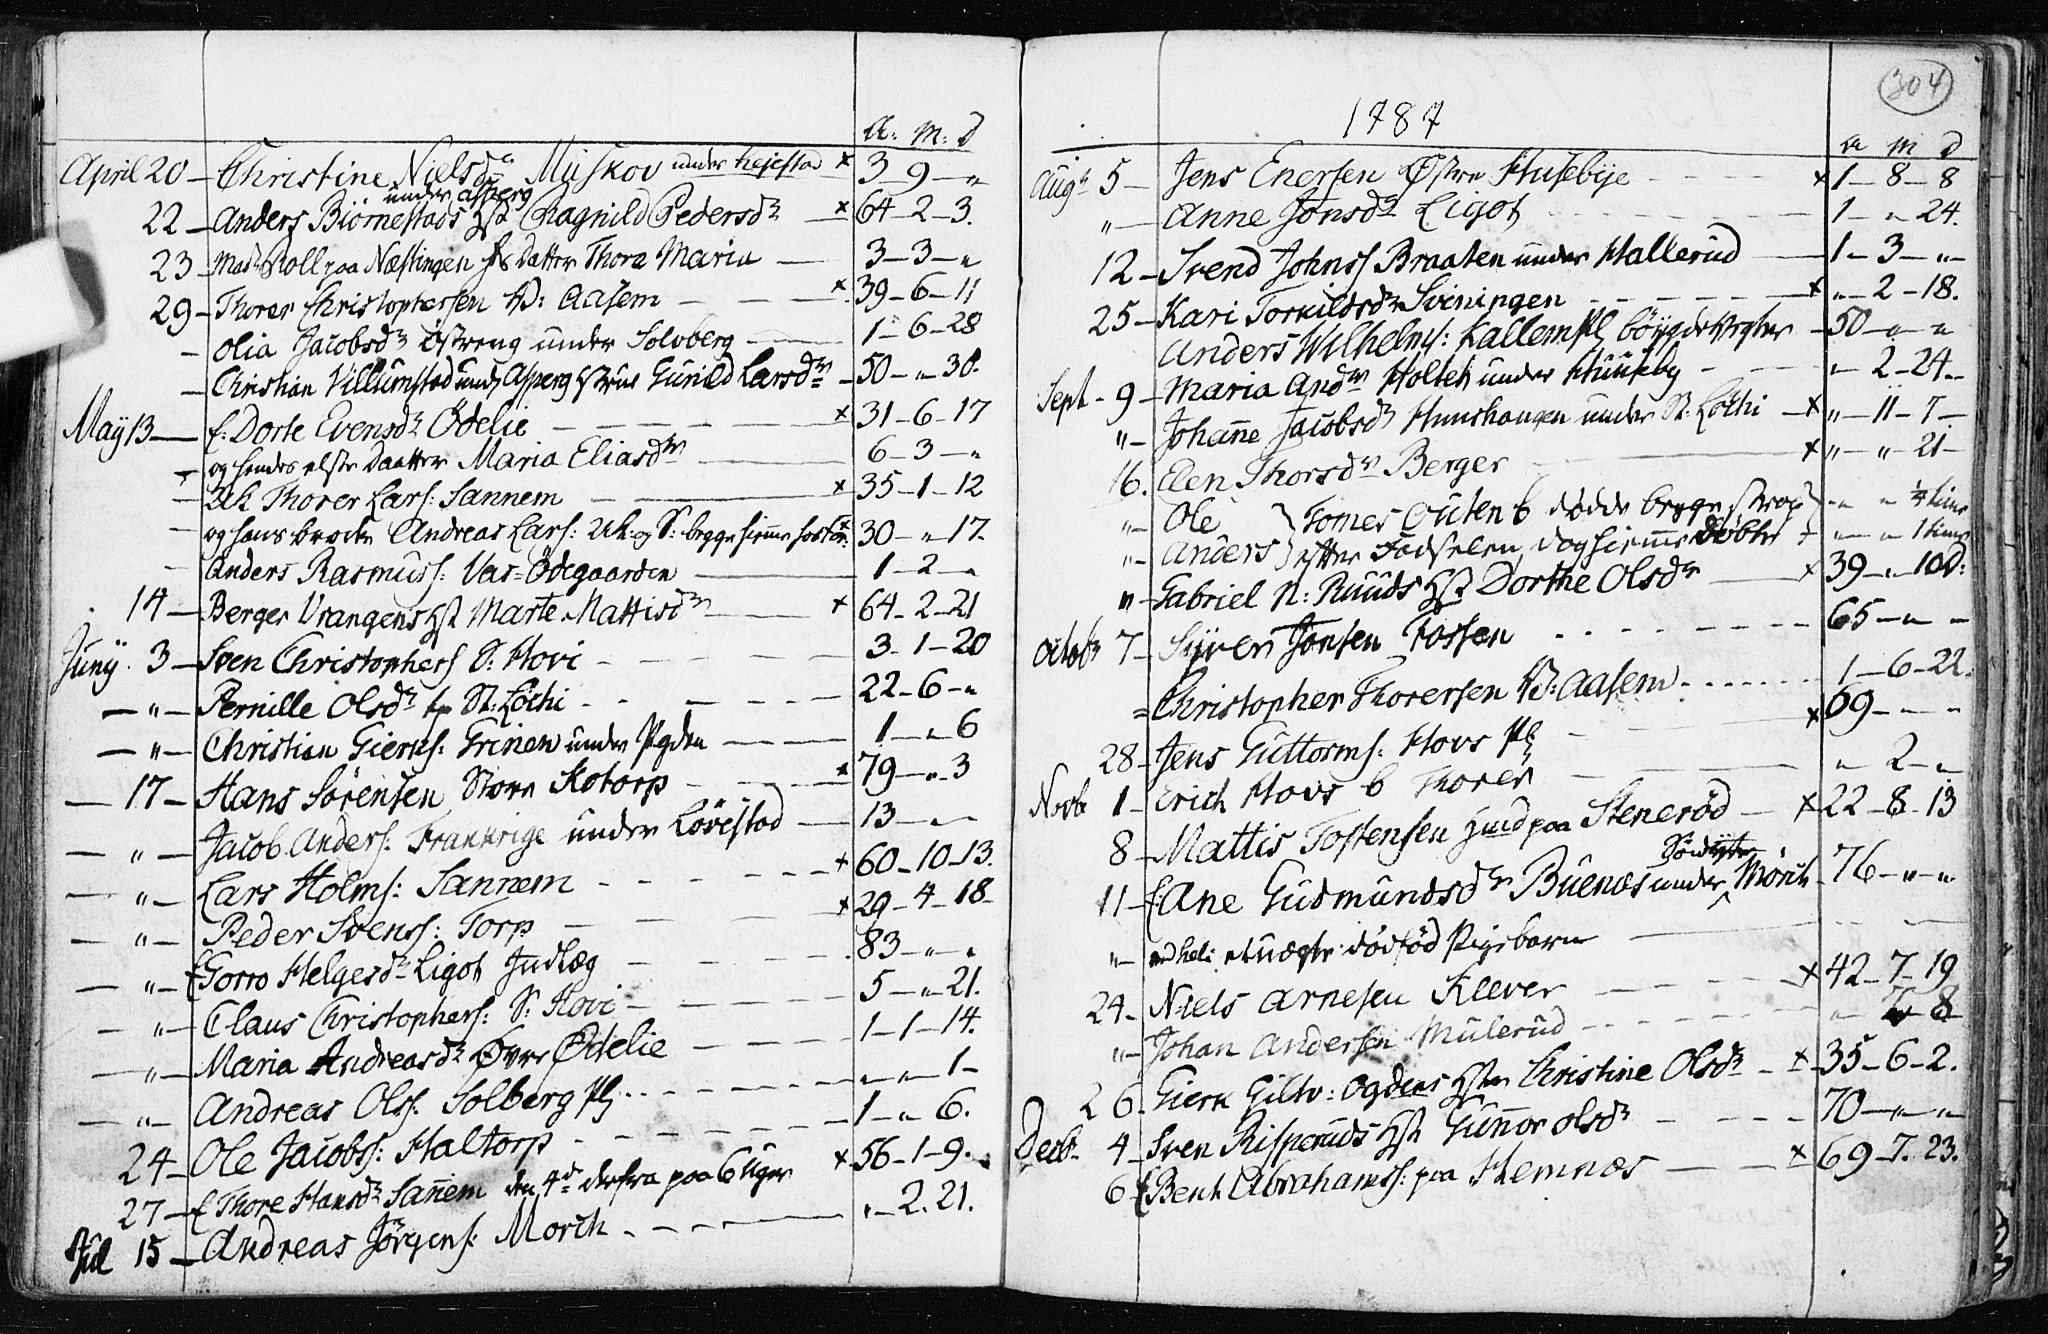 A: M: D
April 20 — Christine Nielsd: Muskov under Hejestad × 3 — 9 — „
under Asperg
22 — Anders Biørnestads Hst Ragnild Pedersdr — × 64 — 2 — 3.
23 — Mad: Roll paa Næstingen Datter Thora Maria — 3 — 3 — „
29 — Thorer Christophersen V: Aasem — × 39 — 6 — 11
— Olia Jacobsdr Østreng under Solvberg — 1 — 6 — 28
— Christian Villumstad und Asperg Hstrue Gunild Larsdr — 50 — „ 30.
May 13 — f: Dorte Evensdr Ødelie — × 31 — 6 — 17
og hendes elste Daatter Maria Eliasdr — 6 — 3 — „
— Uk Thorer Lars: Sannem — × 35 — 1 — 12
— og hans brodr Andreas Lars: Uk og S: begge × 30 — „ 17.
— Anders Rasmuss: Vas=Ødegaarden — 1 — 2 — „
14 — Berger Vrangens Hst Marte Mattisdr — × 64 — 2 — 21
Juny 3 — Sven Christophers S: Hovi — 3 — 1 — 20
— „ — Pernille Olsdr St: Løchi — 22 — 6 — „
— „ — Christian Giers: Grinen under — 1 — „ 6
— 17 — Hans Sørensen Store Kotorp — × 79 — „ 3
— „ — Jacob Anders: Frankrige under Løvestad — 13 — „ —
— „ — Lars Holms: Sannem — × 60 — 10 — 13.
— „ — Peder Svenss: Torp — × 29 — 4 — 18 —
— „ — f Gorro Helgesdr Ligot Indlæg — 83 — „ — „
— „ — Claus Christophers: S: Hovi — 5 — „ 21.
— „ — Maria Andreasdr Øvre Ødelie — 1 — 1 — 14.
— „ — Andreas Ols: Solberg Pl — „ — „ — 1 —
24 — Ole Jacobs: Haltorp — 1 — „ 6.
27 — f Thore Hansdr Sañem den 4de derfra paa 6 Uger × 56 — 1 — 9.
Jul 15 — Andreas Jørgens: Morch — „ — 2. 21.
304
1787
A M D
Augs 5 — Jens Enersen Østre Husebye — × 1 — 8 — 8
„ — Anne Jonsdr Ligot — 1 — „ 24.
12 — Svend Johnss Braaten under Hallerud — 1 — 3 — „ —
25 — Kari Torkildsdr Sviningen — × „ — 2 — 18.
Anders Wilhelms: Kallem Pl — 50 — „ — „
Sept 9 — Maria Andrs Holteh under Huuseby — „ 2 — 24 —
„ — Johañe Jacobsdr Hunshaugen under St: Løchi — × „ — 11 — 7 —
16. Elen Thorsdr Berger — × „ — „ 21 —
„ — Ole } Tomes Outen b døde begge strax } — „ „ ¼ time
„ — Anders } efter Fødselen, dog hiemme døbte + „ — „ 1 time
„ — Gabriel N: Ruuds Hst Dorthe Olsdr — × 39 — „ 10 D:
Octob 7 — Syver Jonsen Fossen — 65 — „ —
= Christopher Thorersen V: Aasem — 1 — 6 — 22.
28 — Jens Guttorms: Hovs Pl — × 69 — „ — „
Novb 1 — Erich Hovs b Thorer — „ 2 — „
8 — Mattis Tostensen Huusmand paa Stenerød — × 22 — 8 — 13
11 — f: Ane Gudmundsdr Buenæs under Søndyster Mørch — 76 — „ — „
„ — et uægte dødfød Pigebarn — „ — „ —
24 — Niels Arnesen Klever — × 42 — 7 — 19
„ — Johan Andersen Mulerud — „ 8
26. Gierk Gilbr: Ogders Hstr Christine Olsdr — × 35 — 6 — 2.
Decb 4 — Sven Risperuds Hst Guñor Olsdr — 70 — „ — „
6 f Bent Abrahamss: paa Hemnæs — × 69 — 7. 23.